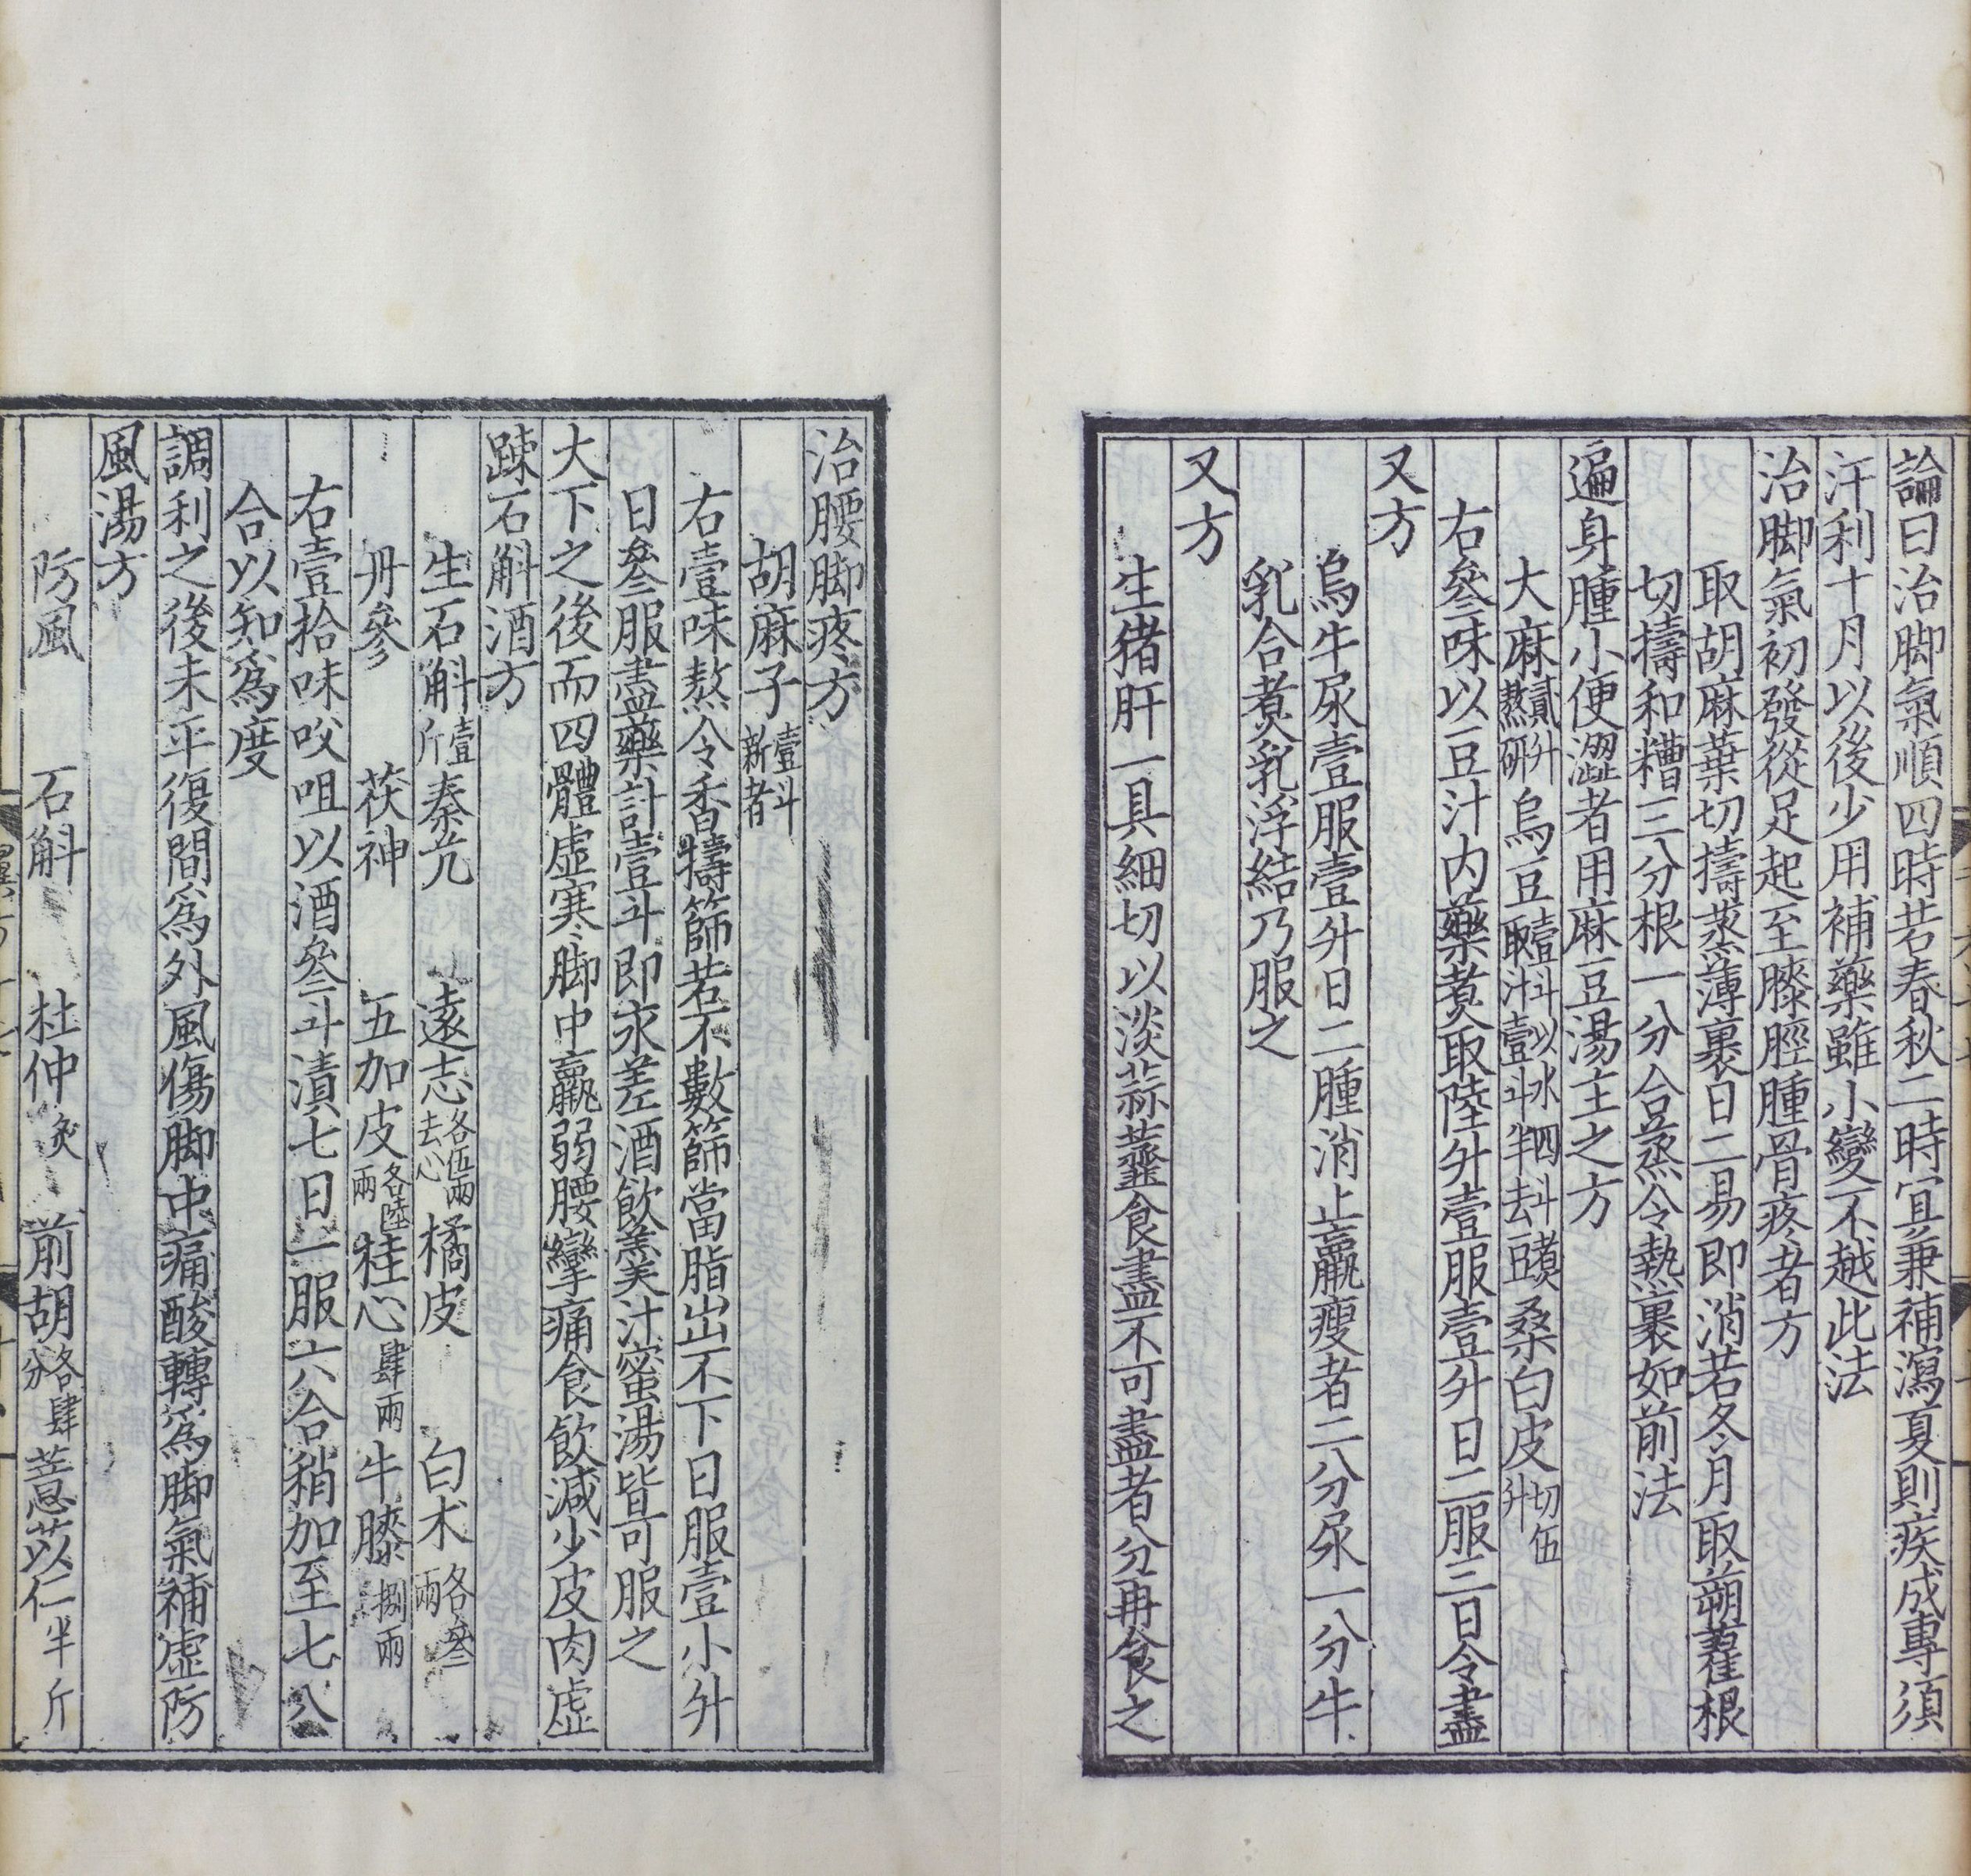 論曰治脚氣順四時若春秋二時宜兼補瀉夏則疾成專須
汗利十月以後少用補藥雖小變不越此法
治脚氣初發從足起至膝脛腫骨疼者方
取胡麻葉切擣蒸薄裹日二易即消若冬月取蒴藋根
切擣和糟三分根一分合蒸令熱裹如前法
遍身腫小便澀者用麻豆湯主之方
大麻貳升熬研烏豆壹斗以水四斗煮取汁壹斗半去豆桑白皮切伍升
右叄味以豆汁内藥煑取陸升壹服壹升日二服三日令盡
又方
烏牛尿壹服壹升日二腫消止羸瘦者二分尿一分牛
乳合煑乳浮結乃服之
又方
生猪肝一具細切以淡蒜虀食盡不可盡者分再食之
治腰脚疼方
胡麻子壹斗新者
右壹味熬令香擣篩若不數篩當脂出不下日服壹小升
日叄服盡藥計壹斗即永差酒飲羹汁蜜湯皆可服之
大下之後而四體虛寒脚中羸弱腰攣痛食飲減少皮肉虛
踈石斛酒方
生石斛壹斤秦艽 遠志各伍兩去心橘皮 白朮各叄兩
丹參 茯神 五加皮各陸兩桂心肆兩牛膝捌兩
右壹拾味㕮咀以酒叄斗漬七日一服六合稍加至七八
合以知爲度
調利之後未平復間爲外風傷脚中痛酸轉爲脚氣補虛防
風湯方
防風 石斛 杜仲炙 前胡各肆分薏苡仁半斤